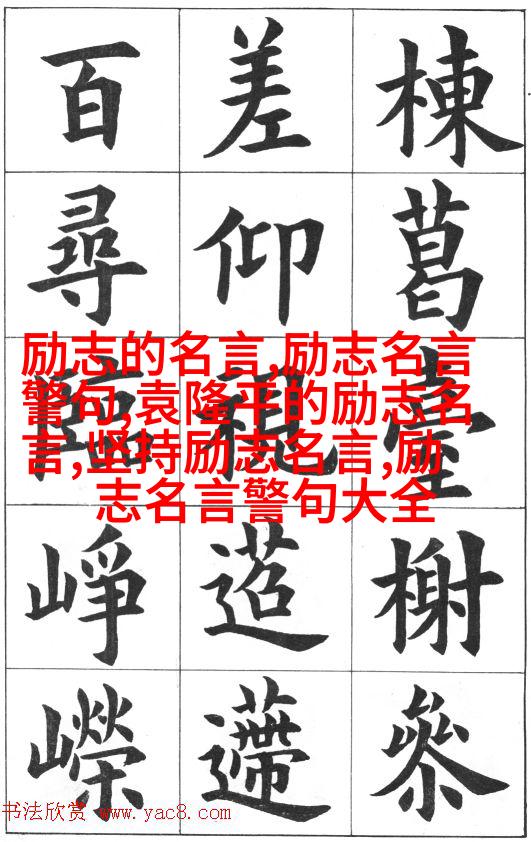 棟葛臺榭叅
差仰視
百尋臨崢嶸
励志的名言,励志名言
警句,袁隆平的励志名
言,坚持励志名言,励
志名言警句大全
书法欣赏 www.yac8.com